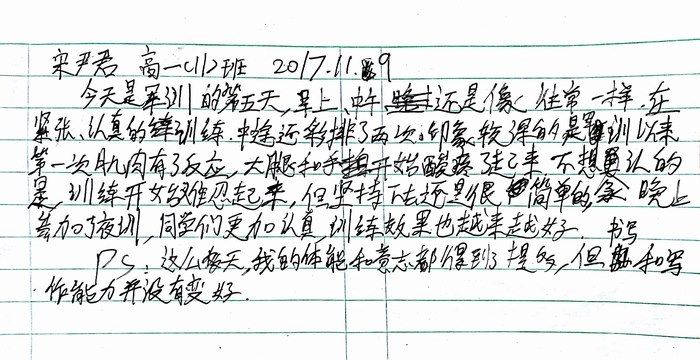 宋尹君 高一(11)班 2017.11.9
今天是军训的第五天,早上、中午还是像往常一样,在
紧张、认真的训练.中途还彩排了两次.印象较深的是军训以来
第一次肌肉有了反应,大腿和手开始酸疼了起来 不想承认的
是,训练开始难忍起来,但坚持下去还是很简单的,晚上
参加了夜训,同学们更加认真 训练效果也越来越好
PS:这么多天,我的体能和意志都得到了提高,但书写和写
作能力并没有变好.